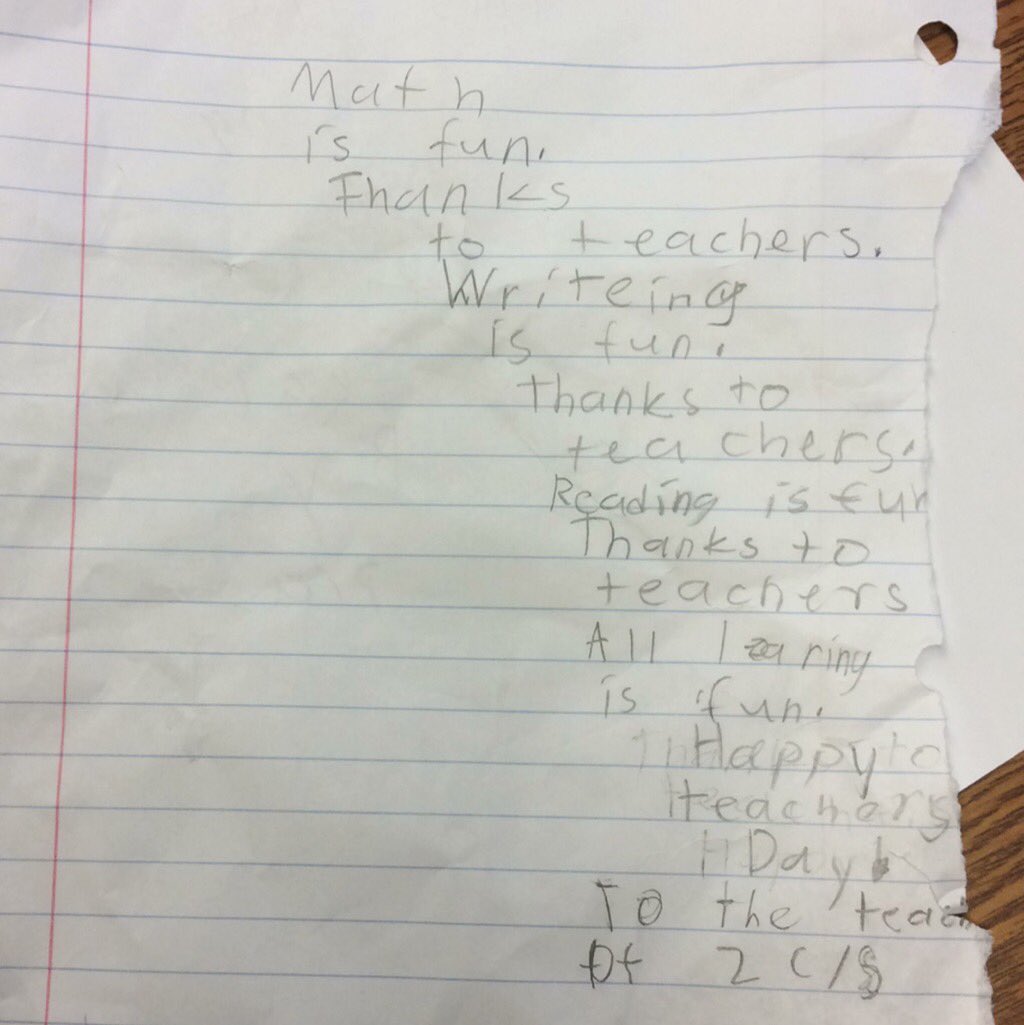 Math
is fun.
Thanks
to teachers.
Writeing
is fun.
Thanks to
teachers.
Reading is fun
Thanks to
teachers
All learing
is fun.
Happy
teachers
Day
To the teach
Of 2